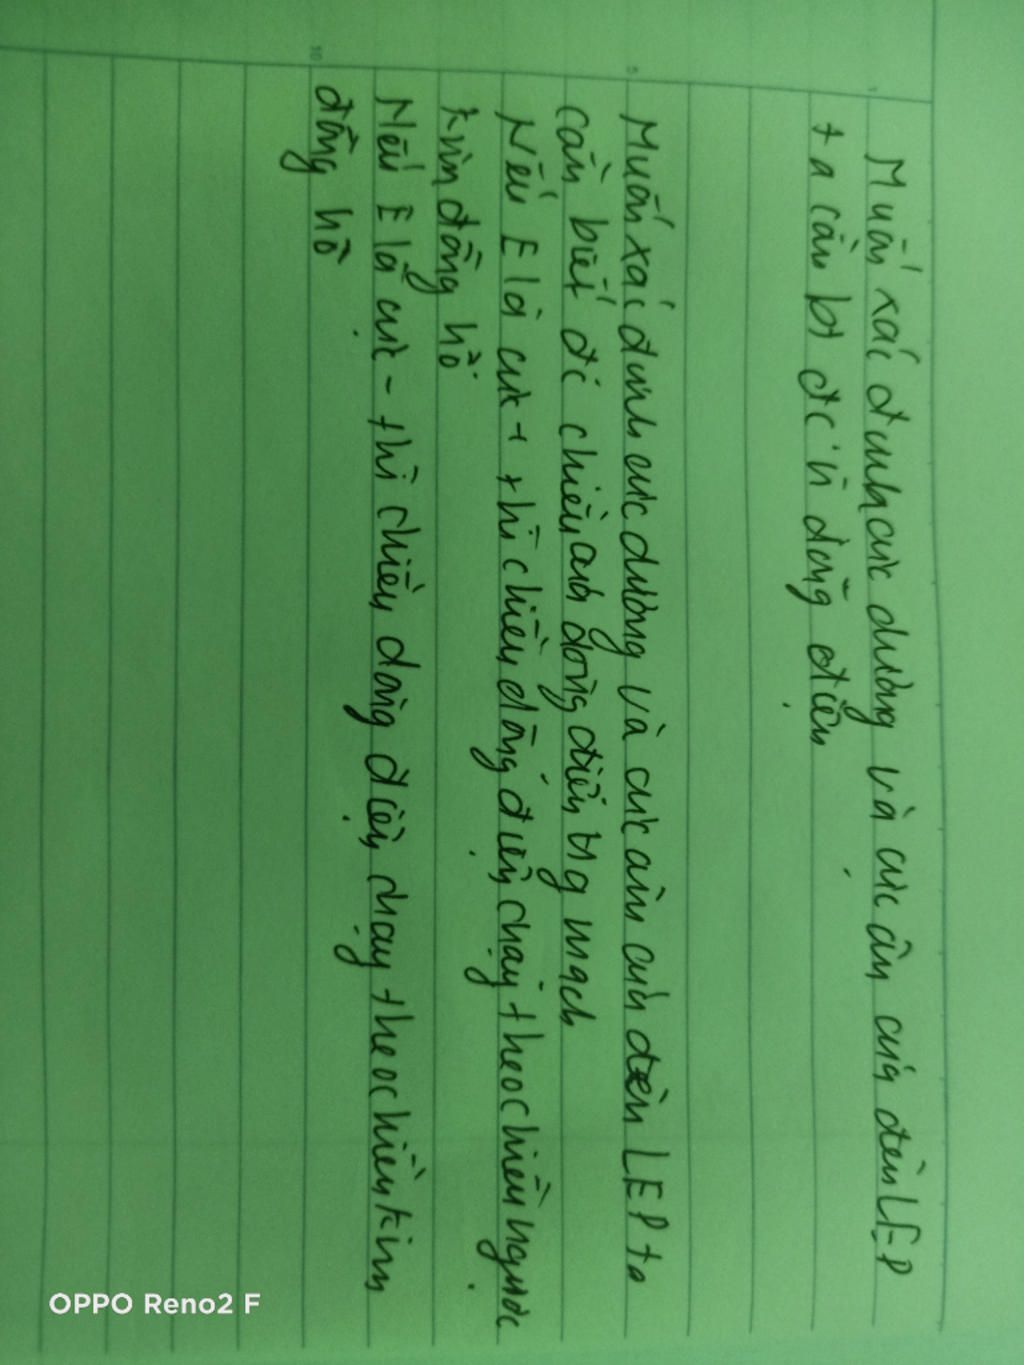 Muốn xác định cực dương và cực âm của đèn LED
ta cần bt đc'n dòng điện
Muốn xác định cực dương và cực âm của đèn LED ta
cần biết đc chiều của dòng điện trg mạch
Nếu E là cực + thì chiều dòng điện chạy theo chiều ngược
kim đồng hồ
Nếu E là cực - thì chiều dòng điện chạy theo chiều kim
đồng hồ
1
5
10
OPPO Reno2 F